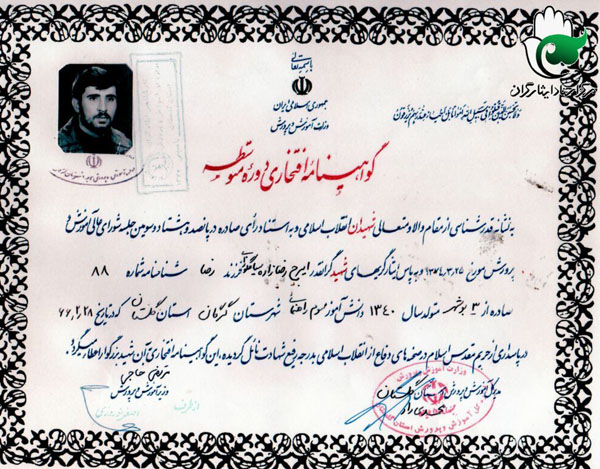 باسمه تعالی
جمهوری اسلامی ایران
وزارت آموزش و پرورش
گواهینامه افتخاری دوره متوسطه
به نشانه قدرشناسی از مقام والا و متعالی شهیدان انقلاب اسلامی و به استناد رأی صادره در پانصد و هشتاد و سومین جلسه شورای عالی آموزش و
پرورش مورخ ۱۳۷۴/۳/۲۵ و به پاس ایثارگریهای شهید گرانقدر ایرج رضازاده فرزند رضا شناسنامه شماره ۸۸
صادره از متولد سال ۱۳۴۰ دانش آموز سوم راهنمایی شهرستان استان گلستان که در تاریخ ۶۶/۲/۲۸
در پاسداری از حریم مقدس اسلام در صحنه های دفاع از انقلاب اسلامی به درجه رفیع شهادت نائل گردیده، این گواهینامه افتخاری آن شهید بزرگوار اعطا میگردد.
مرتضی حاجی
وزیر آموزش و پرورش
از طرف
مدیرکل آموزش و پرورش استان گلستان
وزارت آموزش و پرورش